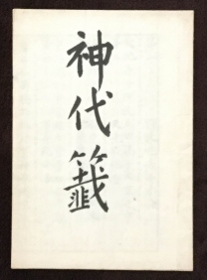 神代籤